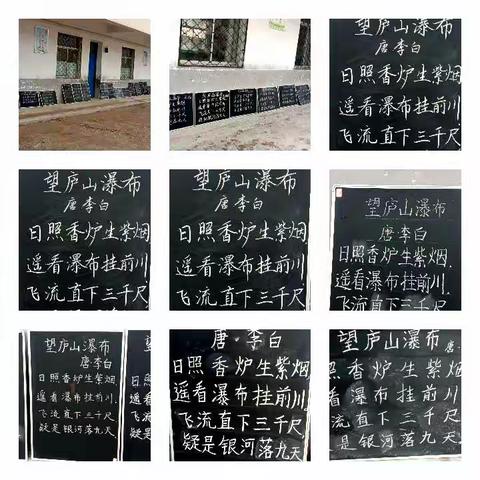 望庐山瀑布
唐李白
日照香炉生紫烟
遥看瀑布挂前川
飞流直下三千尺
望庐山瀑布
唐李白
日照香炉生紫烟
遥看瀑布挂前川
飞流直下三千尺
望庐山瀑布
唐李白
日照香炉生紫烟
遥看瀑布挂前川
飞流直下三千尺
望庐山瀑布
唐李白
日照香炉生紫烟.
遥看瀑布挂前川,
飞流直下三千尺
望庐山瀑布
唐李白
日照香炉生紫烟,
遥看瀑布挂前川,
飞流直下三千尺
疑是银河落九天.
唐·李白
日照香炉生紫烟
遥看瀑布挂前川
飞流直下三千尺
疑是银河落九天
望庐山瀑布 唐
照香炉生紫烟
看瀑布挂前川
流直下三千尺
是银河落九天